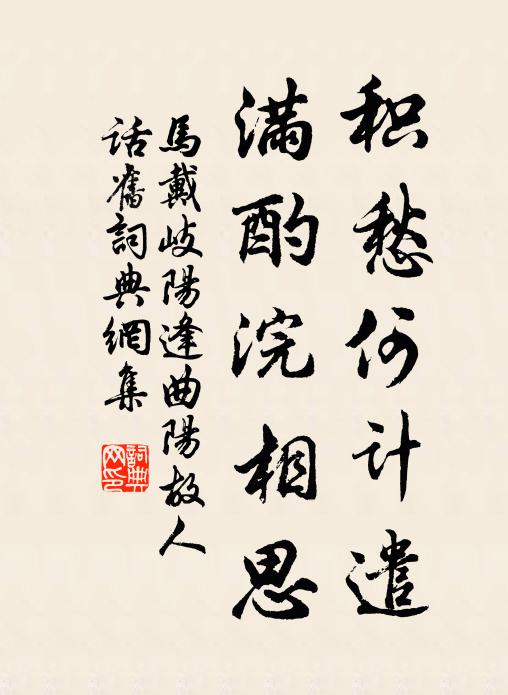 积愁何计遣
满酌浣相思
馬戴岐陽逢曲陽故人
话舊詞典網集
詞典网印